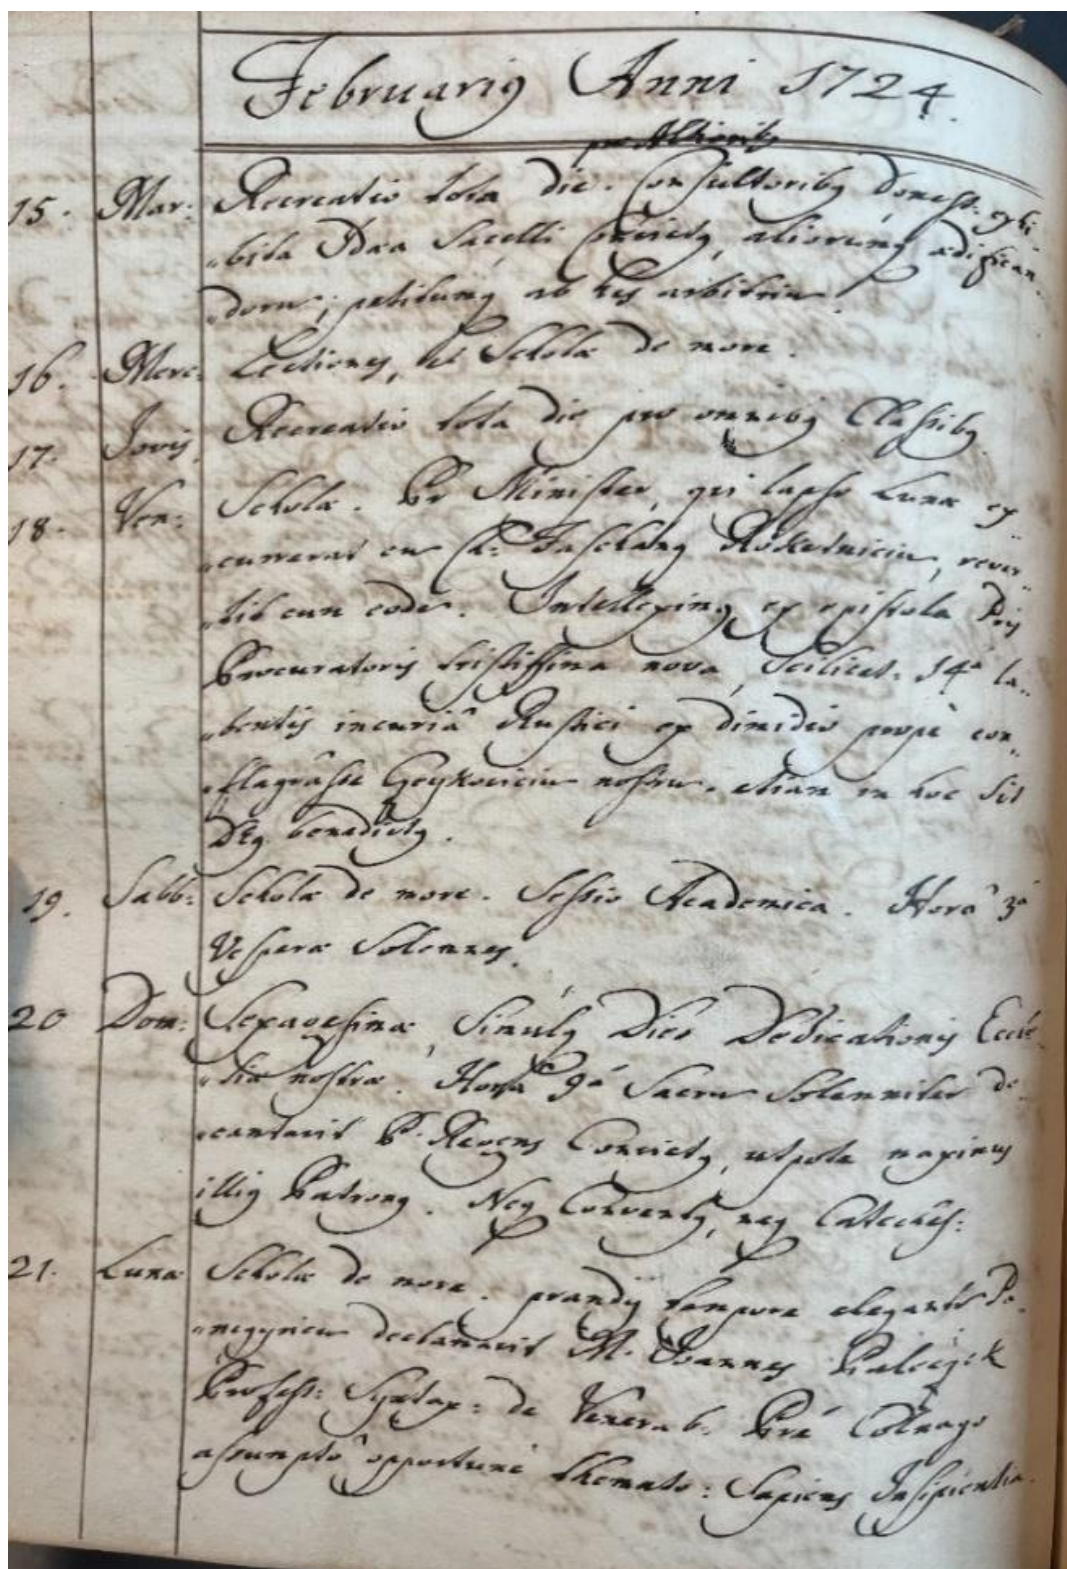 Februarius Anni 1724.
pro Altioribus
15. Mar: Recreatio tota die. Consultoribus Domest: exhi-
bita Idaea Sacelli Convictus, aliorumque aedifican-
dorum; petitumque ab his arbitrium.
16. Merc: Lectiones, et Scholae de more.
17. Jovis Recreatio tota die pro omnibus Classibus
18. Ven: Scholae. Pr Minister, qui lapso Lunae ex
currerat cum C: Paschang Rokytniciu, rever-
tit cum eodem. Intelleximus ex epistola Pris
Procuratoris tristissima nova, Scilicet: 14a la-
bentis incuriâ Rustici ex dimidio prope con-
flagrâsse nostrum. etiam in hoc sit
Deus benedictus.
19. Sabb: Scholae de more. Sessio Academica. Horâ 3a
Vesperae Solennes.
20 Dom: Sexagesimae, Simulque Dies Dedicationis Eccle-
siae nostrae. Horâ 9â Sacrum Solenniter de-
cantavit P. Regens Convictus, utpote maximus
illius Patronus. Neque Conventus, neque Cateches:
21. Lunae Scholae de more. prandij tempore eleganter Pa-
negyricum declamavit M. Joannes
Profess: Syntax: de Venerab: Pre Colnago
assumpto opportune themate: Sapiens Insipientia.